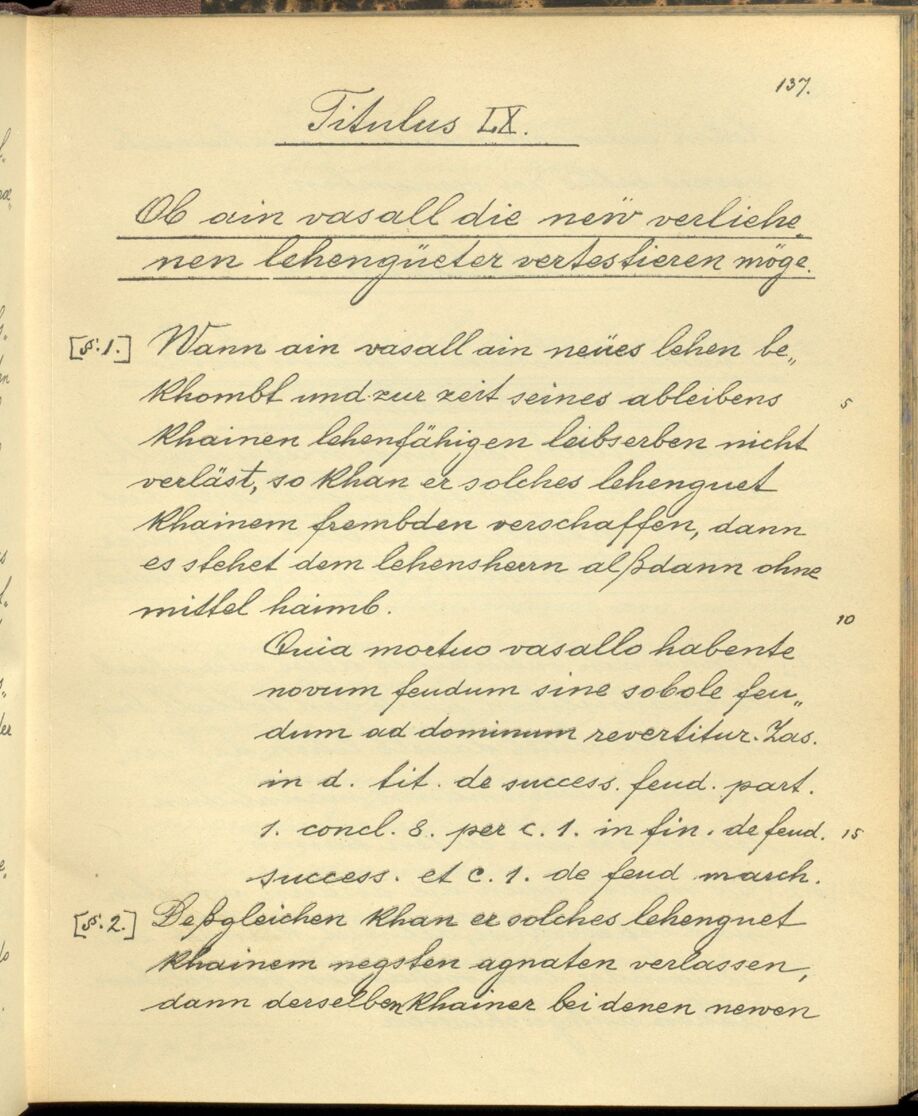 137.
Titulus LX.
Ob ain vasall die neẅ verliehe„
nen lehengüeter vertestieren möge.
[§:1.] Wann ain vasall ain neües lehen be„
khombt und zur zeit seines ableibens 5
khainen lehenfähigen leibserben nicht
verläst, so khan er solches lehenguet
khainem frembden verschaffen, dann
es stehet dem lehensherrn alßdann ohne
mittel haimb. 10
Quia mortuo vasallo habente
novum feudum sine sobole feu„
dum ad dominum revertitur. Zas.
in d. tit. de success. feud. part.
1. concl. 8. per c. 1. in fin. de feud. 15
success. et c. 1. de feud march.
[§:2.] Deßgleichen khan er solches lehenguet
khainem negsten agnaten verlassen,
dann derselben khainer bei denen newen